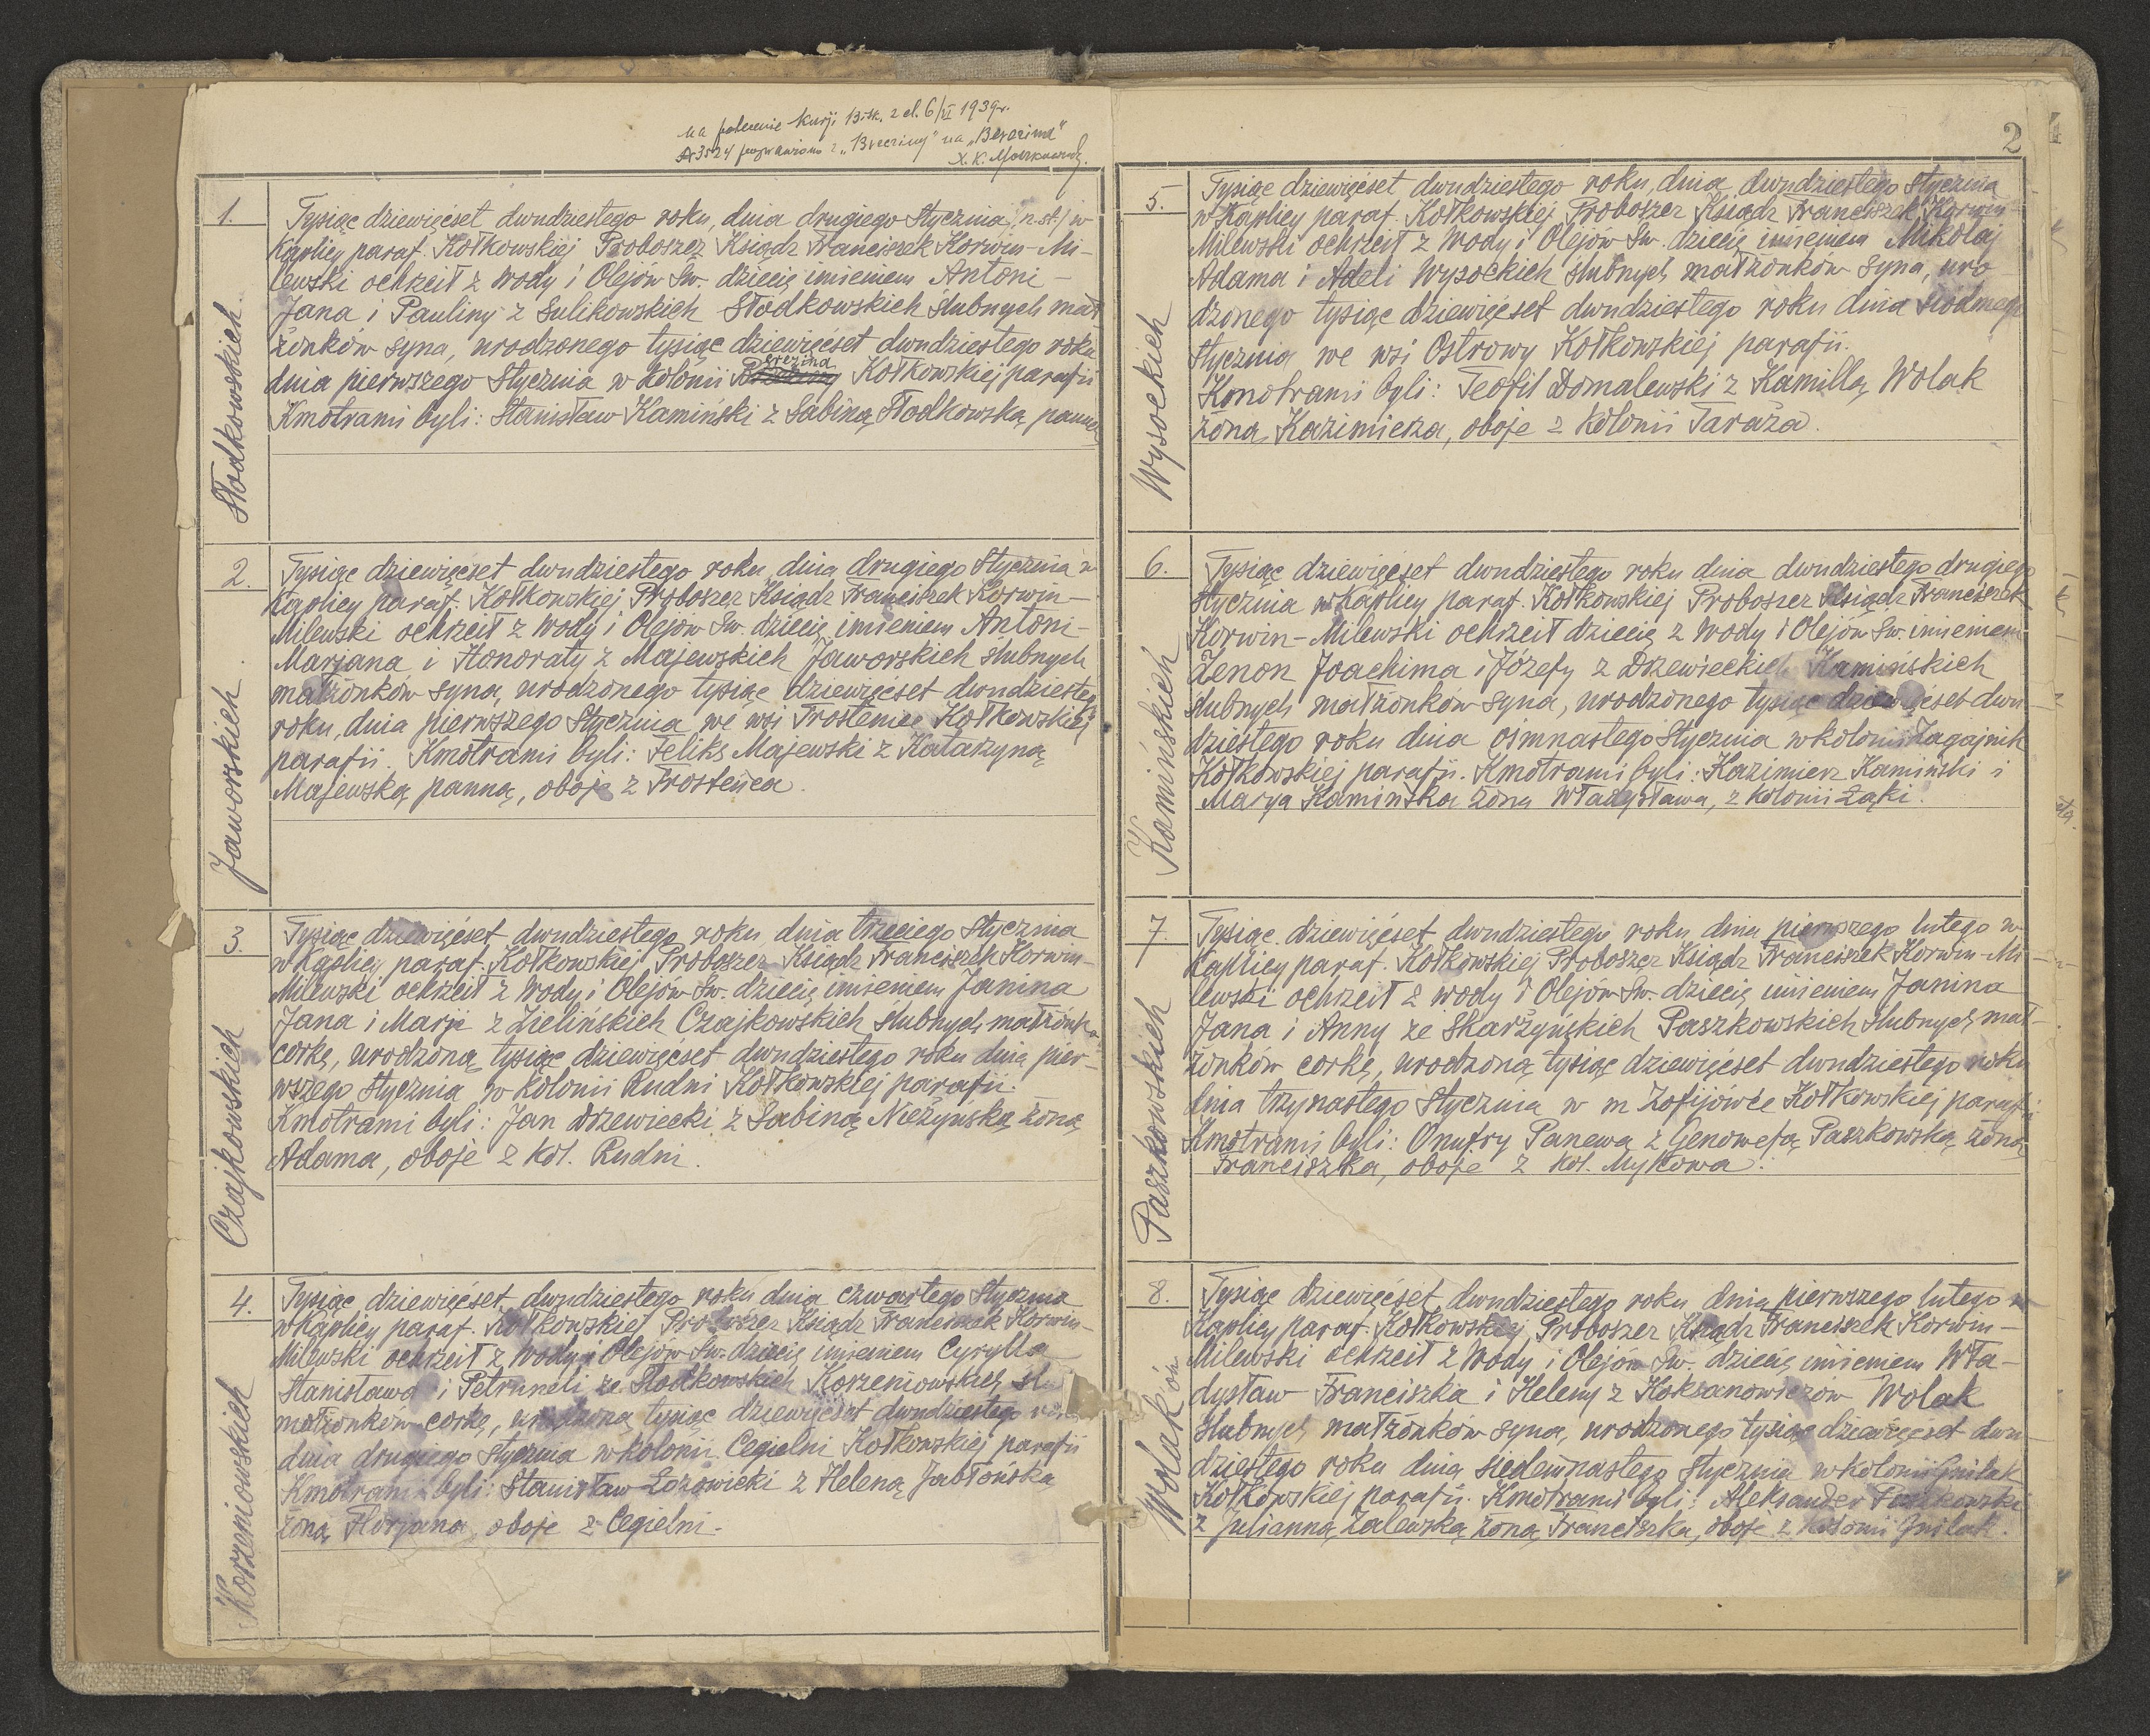 na polecenie Kurji Bisk. z d. 6/VI 1939 r.
№ 3524 poprawiono z „Brzeziny" na „Berezina"
X. K.
1.
Słodkowskich
Tysiąc dziewięćset dwudziestego roku, dnia drugiego Stycznia (n. st.) w
Kaplicy paraf. Kołkowskiej Proboszcz Ksiądz Franciszek Korwin-Mi-
lewski ochrzcił z Wody i Olejów Św. dziecię imieniem Antoni -
Jana i Pauliny z Sulikowskich Słodkowskich ślubnych mał-
żonków syna, urodzonego tysiąc dziewięćset dwudziestego roku
dnia pierwszego Stycznia w kolonii Berezina Kołkowskiej parafii
Kmotrami byli: Stanisław Kamiński z Sabiną Słodkowską panną
2.
Jaworskich.
Tysiąc dziewięćset dwudziestego roku, dnia drugiego Stycznia w
Kaplicy paraf. Kołkowskiej Proboszcz Ksiądz Franciszek Korwin-
Milewski ochrzcił z Wody i Olejów Św. dziecię imieniem Antoni -
Marjana i Honoraty z Majewskich Jaworskich ślubnych
małżonków syna, urodzonego tysiąc dziewięćset dwudziestego
roku, dnia pierwszego Stycznia we wsi Trosteniec Kołkowskiej
parafii. Kmotrami byli: Feliks Majewski z Katarzyną
Majewską panną, oboje z Trosteńca.
3.
Czajkowskich
Tysiąc dziewięćset dwudziestego roku dnia trzeciego Stycznia
w Kaplicy paraf. Kołkowskiej Proboszcz Ksiądz Franciszek Korwin-
Milewski ochrzcił z Wody i Olejów Św. dziecię imieniem Janina
Jana i Marji z Zielińskich Czajkowskich ślubnych małżonków
corkę, urodzoną tysiąc dziewięćset dwudziestego roku dnia pier-
wszego Stycznia w kolonii Rudni Kołkowskiej parafii.
Kmotrami byli: Jan Drzewiecki z Sabiną Nieżyńską żoną
Adama, oboje z kol. Rudni.
4.
Korzeniowskich
Tysiąc dziewięćset dwudziestego roku dnia czwartego Stycznia
w Kaplicy paraf. Kołkowskiej Proboszcz Ksiądz Franciszek Korwin-
Milewski ochrzcił z Wody i Olejów Św. dziecię imieniem Cyrylla
Stanisława i Petruneli ze Słodkowskich Korzeniowskich
małżonków corkę, urodzoną tysiąc dziewięćset dwudziestego roku
dnia drugiego Stycznia w kolonii Cegielni Kołkowskiej parafii
Kmotrami byli: Stanisław Łozowicki z Heleną Jabłońską
żoną Florjana, oboje z Cegielni.
2
5.
Wysockich
Tysiąc dziewięćset dwudziestego roku, dnia dwudziestego Stycznia
w Kaplicy paraf. Kołkowskiej Proboszcz Ksiądz Franciszek Korwin-
Milewski ochrzcił z Wody i Olejów Św. dziecię imieniem Mikołaj
Adama i Adeli Wysockich ślubnych małżonków syna, uro
dzonego tysiąc dziewięćset dwudziestego roku dnia siódmego
Stycznia we wsi Ostrowy Kołkowskiej parafii.
Kmotrami byli: Teofil Domalewski z Kamillą Wolak
żoną Kazimierza, oboje z kolonii Taraża.
6.
Kamińskich
Tysiąc dziewięćset dwudziestego roku dnia dwudziestego drugiego
Stycznia w Kaplicy paraf. Kołkowskiej Proboszcz Ksiądz Franciszek
Korwin-Milewski ochrzcił dziecię z Wody i Olejów Św. imieniem
Zenon Joachima i Józefy z Drzewieckich Kamińskich
ślubnych małżonków syna, urodzonego tysiąc dziewięćset dwu-
dziestego roku dnia ośmnastego Stycznia w kolonii Zagajnik
Kołkowskiej parafii. Kmotrami byli: Kazimierz Kamiński i
Marya Kamińska żona Władysława, z kolonii Łąki.
7.
Paszkowskich
Tysiąc dziewięćset dwudziestego roku dnia pierwszego lutego w
Kaplicy paraf. Kołkowskiej Proboszcz Ksiądz Franciszek Korwin-Mi-
lewski ochrzcił z Wody i Olejów Św. dziecię imieniem Janina
Jana i Anny ze Skarżyńskich Paszkowskich ślubnych mał-
żonków corkę, urodzoną tysiąc dziewięćset dwudziestego roku
dnia trzynastego Stycznia w m Zofijówce Kołkowskiej parafii
Kmotrami byli: Onufry Panewa z Genowefą Paszkowską żoną
Franciszka, oboje z kol. Mykowa.
8.
Wolaków
Tysiąc dziewięćset dwudziestego roku dnia pierwszego lutego w
Kaplicy paraf. Kołkowskiej Proboszcz Ksiądz Franciszek Korwin-
Milewski ochrzcił z Wody i Olejów Św. dziecię imieniem Wła-
dysław Franciszka i Heleny z Koksanowiczów Wolak
ślubnych małżonków syna, urodzonego tysiąc dziewięćset dwu-
dziestego roku dnia siedemnastego Stycznia w kolonii Gnilak
Kołkowskiej parafii. Kmotrami byli: Aleksander
z Julianną Zalewską żoną Franciszka, oboje z kolonii Gnilak.